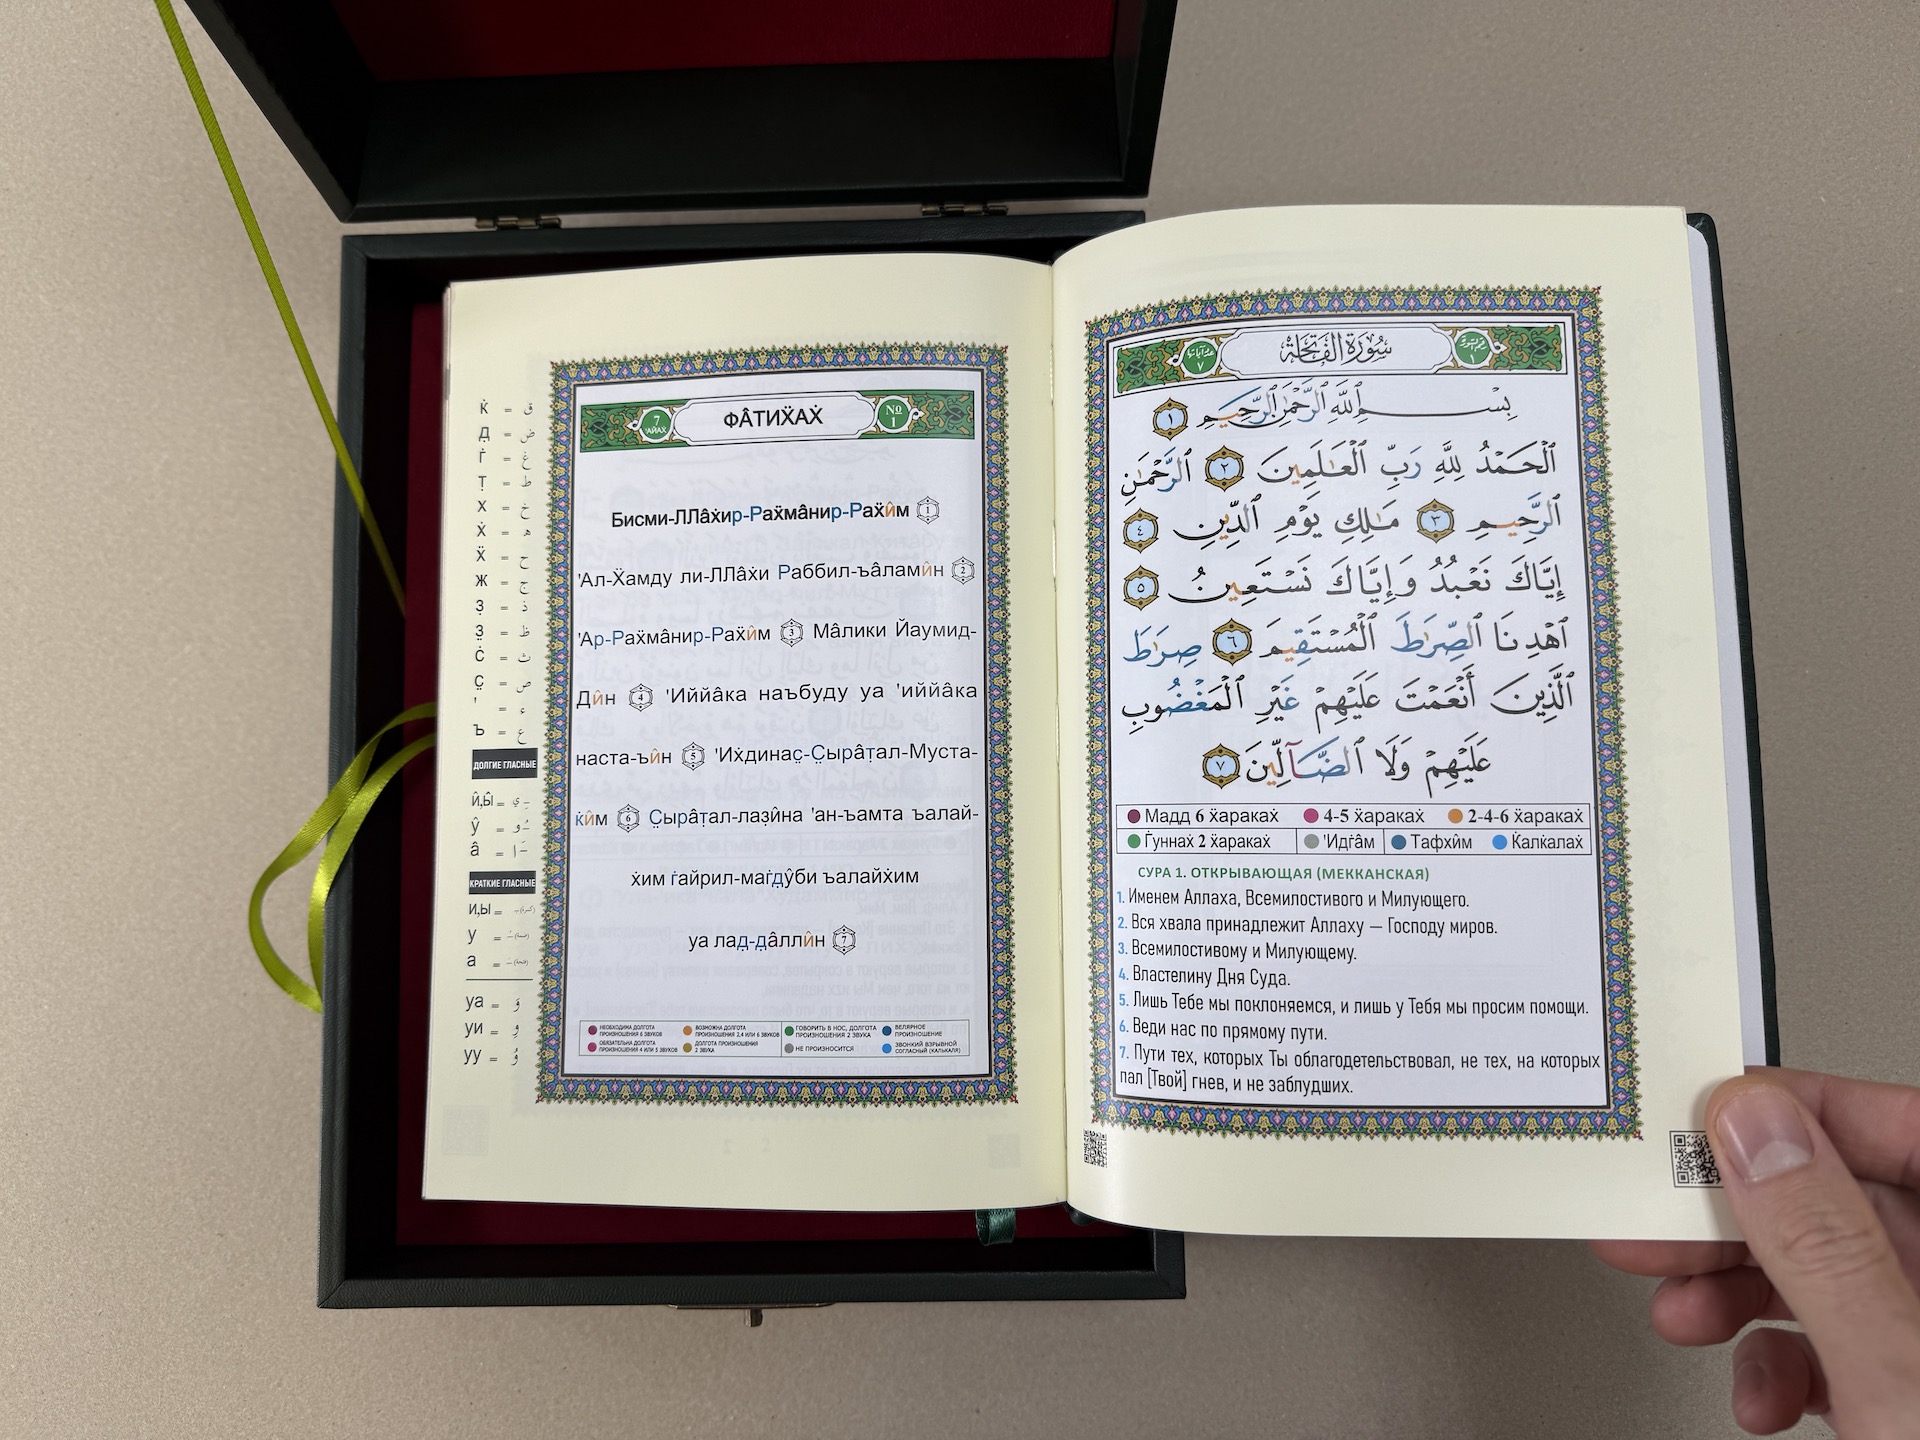 Ќ = ق
Д̣ = ض
Ѓ = غ
Т̣ = ط
Х = خ
Х̇ = ه
Ӿ = ح
Ж = ج
З̣ = ذ
З̤ = ظ
Ċ = ث
С̤ = ص
' = ء
Ъ = ع
ДОЛГИЕ ГЛАСНЫЕ
и̂,ы̂ = ـِي
у̂ = ـُو
â = ـَا
КРАТКИЕ ГЛАСНЫЕ
и,ы =
у =
а =
уа = وَ
уи = وِ
уу = وُ
7 'АЙАХ
ФÂТИХ̈АХ̇
№ 1
Бисми-ЛЛâх̇ир-Рах̈мâнир-Рах̈и̂м 1
'Ал-Х̈амду ли-ЛЛâх̇и Раббил-ъâлами̂н 2
'Ар-Рах̈мâнир-Рах̈и̂м 3 Мâлики Йаумид-
Ди̂н 4 'Иййâка наъбуду уа 'иййâка
наста-ъи̂н 5 'Их̇динас̤-С̤ырâт̣ал-Муста-
ќи̂м 6 С̤ырâт̣ал-лаз̣и̂на 'ан-ъамта ъалай-
х̇им ѓайрил-маѓд̣у̂би ъалайх̇им
уа лад̣-д̣âлли̂н 7
НЕОБХОДИМА ДОЛГОТА ПРОИЗНОШЕНИЯ 6 ЗВУКОВ
ВОЗМОЖНА ДОЛГОТА ПРОИЗНОШЕНИЯ 2,4 ИЛИ 6 ЗВУКОВ
ГОВОРИТЬ В НОС, ДОЛГОТА ПРОИЗНОШЕНИЯ 2 ЗВУКА
ВЕЛЯРНОЕ ПРОИЗНОШЕНИЕ
ОБЯЗАТЕЛЬНА ДОЛГОТА ПРОИЗНОШЕНИЯ 4 ИЛИ 5 ЗВУКОВ
ДОЛГОТА ПРОИЗНОШЕНИЯ 2 ЗВУКА
НЕ ПРОИЗНОСИТСЯ
ЗВОНКИЙ ВЗРЫВНОЙ СОГЛАСНЫЙ (КАЛЬКАЛЯ)
رقم السورة ١
سُورَةُ الفَاتِحَة
عدد آياتها ٧
بِسْمِ ٱللَّهِ ٱلرَّحْمَٰنِ ٱلرَّحِيمِ ١
ٱلْحَمْدُ لِلَّهِ رَبِّ ٱلْعَٰلَمِينَ ٢ ٱلرَّحْمَٰنِ
ٱلرَّحِيمِ ٣ مَٰلِكِ يَوْمِ ٱلدِّينِ ٤
إِيَّاكَ نَعْبُدُ وَإِيَّاكَ نَسْتَعِينُ ٥
ٱهْدِنَا ٱلصِّرَٰطَ ٱلْمُسْتَقِيمَ ٦ صِرَٰطَ
ٱلَّذِينَ أَنْعَمْتَ عَلَيْهِمْ غَيْرِ ٱلْمَغْضُوبِ
عَلَيْهِمْ وَلَا ٱلضَّآلِّينَ ٧
Мадд 6 х̈араках̇ 4-5 х̈араках̇ 2-4-6 х̈араках̇
Ѓуннах̇ 2 х̈араках̇ 'Идѓâм Тафхи̂м Ќалќалах̇
СУРА 1. ОТКРЫВАЮЩАЯ (МЕККАНСКАЯ)
1. Именем Аллаха, Всемилостивого и Милующего.
2. Вся хвала принадлежит Аллаху — Господу миров.
3. Всемилостивому и Милующему.
4. Властелину Дня Суда.
5. Лишь Тебе мы поклоняемся, и лишь у Тебя мы просим помощи.
6. Веди нас по прямому пути.
7. Пути тех, которых Ты облагодетельствовал, не тех, на которых
пал [Твой] гнев, и не заблудших.